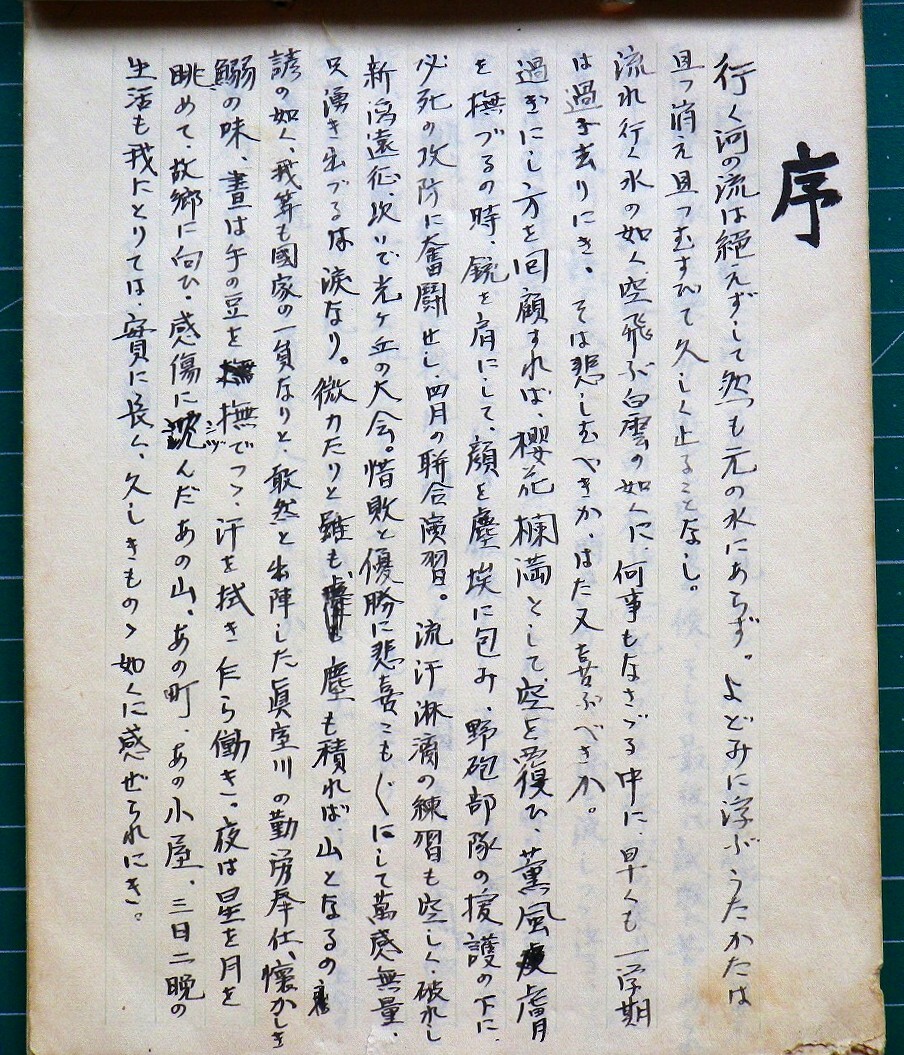 序
行く河の流は絶えずして然も元の水にあらず。よどみに浮ぶうたかたは
且つ消え且つむすびて久しく止ることなし。
流れ行く水の如く空飛ぶ白雲の如くに、何事もなさゞる中に、早くも一学期
は過ぎ去りにき。そは悲しむべきか、はた又喜ぶべきか。
過ぎにし方を回顧すれば、櫻花欄満として空を覆ひ、薫風膚
を撫づるの時、銃を肩にして、顔を塵埃に包み、野砲部隊の援護の下に、
必死の攻防に奮闘せし、四月の聯合演習。流汗淋滴の練習も空しく、破れし
新潟遠征、次いで光ヶ丘の大会。惜敗と優勝に悲喜こもぐにして萬感無量、
只湧き出づるは涙なり。微力たりと雖も、塵も積れば、山となるの
諺の如く、我等も國家の一員なりと、敢然と出陣した眞室川の勤労奉仕、懐かしき
鰯の味、晝は手の豆を撫でつゝ、汗を拭きたら働き。夜は星を月を
眺めて、故郷に向ひ、感傷に沈シヅんだあの山。あの町、あの小屋、三日二晩の
生活も我にとりては、實に長く、久しきものゝ如くに感ぜられにき。